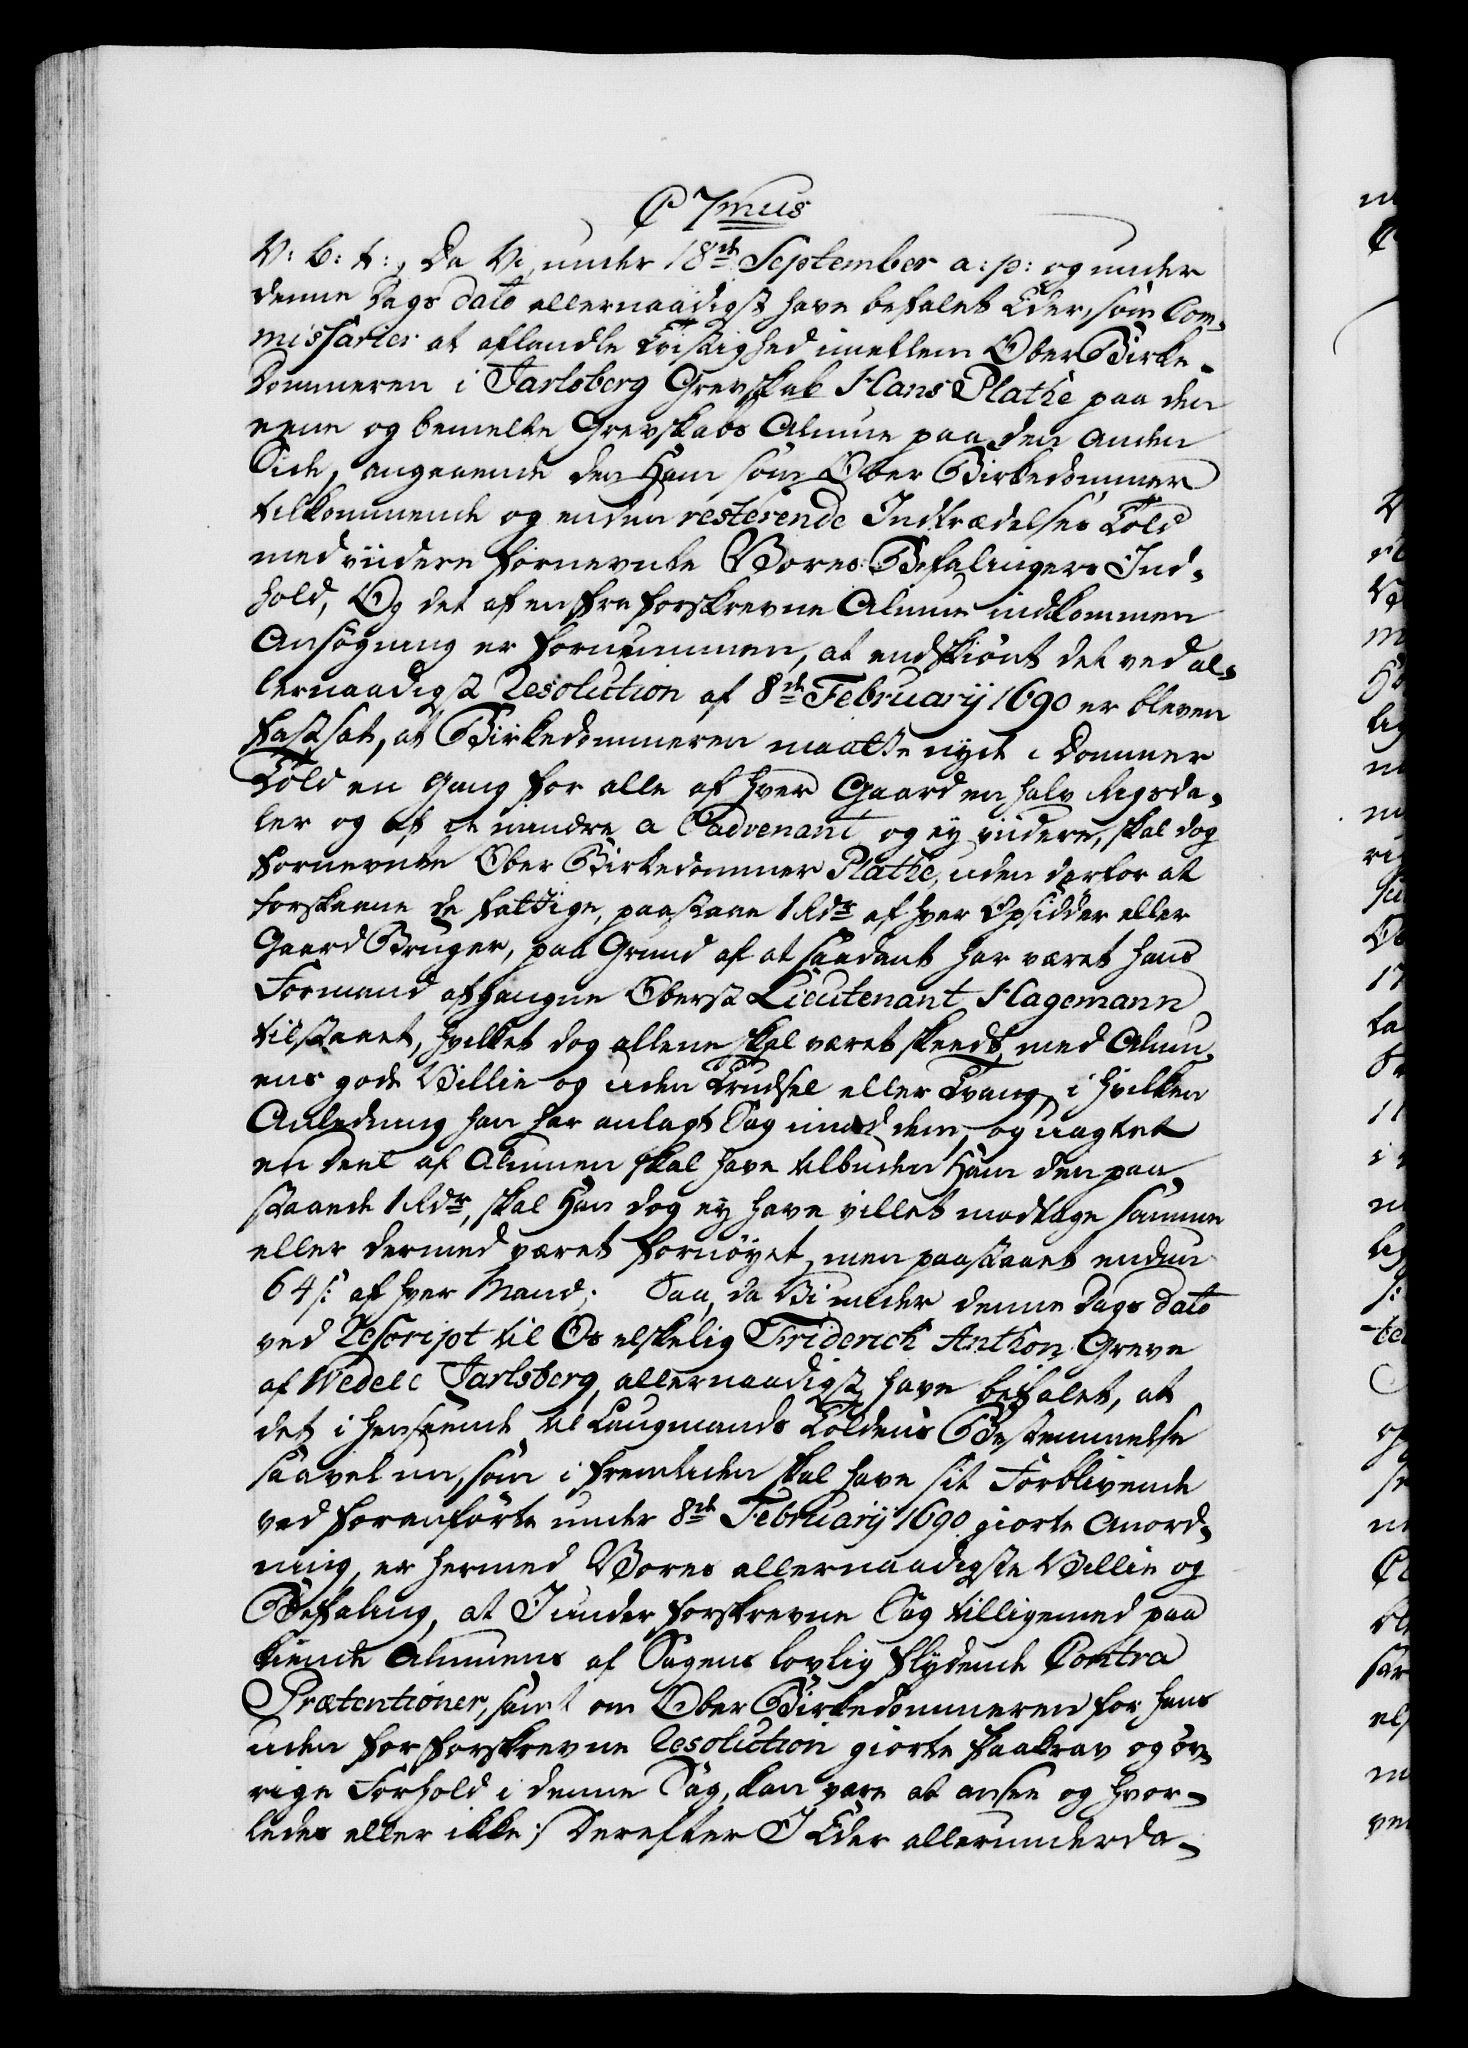 C 7mus
V: B: t:, Da Vi under 18de September a: p: og under
denne Dags dato allernaadigst have befalet Eder, som Com-
missarier at afhandle Tvistighed imellem Ober Birke-
dommeren i Jarlsberg Grevskab Hans Plathe paa den
eene og bemelte Grevskabs Almue paa den anden
Side, angaaende den Ham som Ober Birkedommer
tilkommende og endnu resterende Indtrædelses Told
med viidere fornevnte Vores Befalingers Ind-
hold, Og det af en fra forskrevne Almue indkommen
Ansøgning er fornummen, at endskiønt det ved al-
lernaadigst Resolution af 8de February 1690 er bleven
fastsat, at Birkedommeren maatte nyde i Dommer
Told en Gang for alle af hver Gaard en halv Rigsda-
ler og af de mindre a l'advenant og ey viidere, skal dog
fornevnte Ober Birkedommer Plathe, uden derfor at
forskaane de fattige, paastaae 1 Rdr af hver Opsidder eller
Gaard Bruger, paa Grund af at saadant har været hans
Formand afgangne Oberst Lieutenant Hagemann
tilstaaet, hvilket dog allene skal været skeedt med Almu-
ens gode Villie og uden Trudsel eller Tvang, i hvilken
Anledning han har anlagt Sag imod dem, og uagtet
en Deel af Almuen skal have tilbuden Ham den paa-
staaede 1 Rdr, skal Han dog ey have villet modtage samme
eller dermed været fornøyet, men paastaaet endnu
64 s: af hver Mand; Saa, da Vi under denne Dags dato
ved Rescript til Os elskelig Friderich Anthon Greve
af Wedele Jarlsberg, allernaadigst have befalet, at
det i Henseende til Laugmands Toldens Bestemmelse
saavel nu, som i Fremtiden skal have sit Forblivende
ved foranførte under 8de February 1690 giorte Anord-
ning, er hermed Vores allernaadigste Villie og
Befaling, at I under forskrevne Sag tilligemed paa
kiende Almuens af Sagens lovlig flydende Contra
Prætentioner, samt om Ober Birkedommeren for hans
uden for forskrevne Resolution giorte Paakrav og øv-
rige Forhold i denne Sag, kan være at ansee og hvor-
ledes eller ikke :/ Derefter I Eder allerunderda-